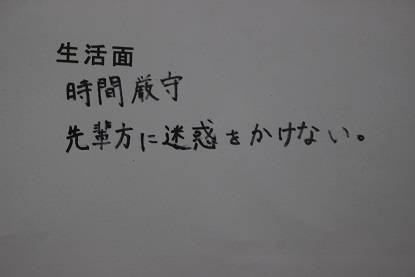 生活面
時間厳守
先輩方に迷惑をかけない。